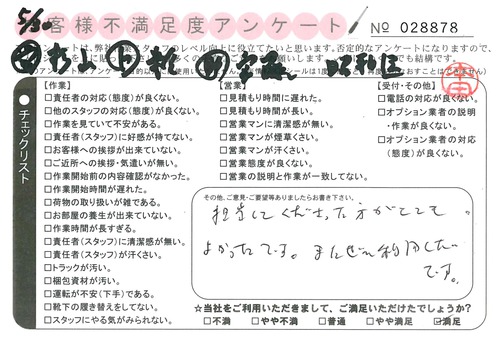 5/30
お客様不満足度アンケート
No 028878
チェックリスト
【作業】
□責任者の対応(態度)が良くない。
□他のスタッフの対応(態度)が良くない。
□作業を見ていて不安がある。
□責任者(スタッフ)に好感が持てない。
□お客様への挨拶が出来ていない。
□ご近所への挨拶・気遣いが無い。
□作業開始前の内容確認がなかった。
□作業開始時間が遅れた。
□荷物の取り扱いが雑である。
□お部屋の養生が出来ていない。
□作業時間が長すぎる。
□責任者(スタッフ)に清潔感が無い。
□責任者(スタッフ)が汗くさい。
□トラックが汚い。
□梱包資材が汚い。
□運転が不安(下手)である。
□靴下の履き替えをしてない。
□スタッフにやる気がみられない。
【営業】
□見積もり時間に遅れた。
□見積もり時間が長い。
□営業マンに清潔感が無い。
□営業マンが煙草くさい。
□営業マンが汗くさい。
□営業態度が良くない。
□営業の説明と作業が一致してない。
【受付・その他】
□電話の対応が良くない。
□オプション業者の説明
・作業が良くない。
□オプション業者の対応
(態度)が良くない。
その他、ご意見・ご要望等ありましたらお書き下さい。
担当してくださった方がとても
よかったです。またぜひ利用したい
です。
☆当社をご利用いただきまして、ご満足いただけたでしょうか?
□不満 □やや不満 □普通 □やや満足 ☑満足